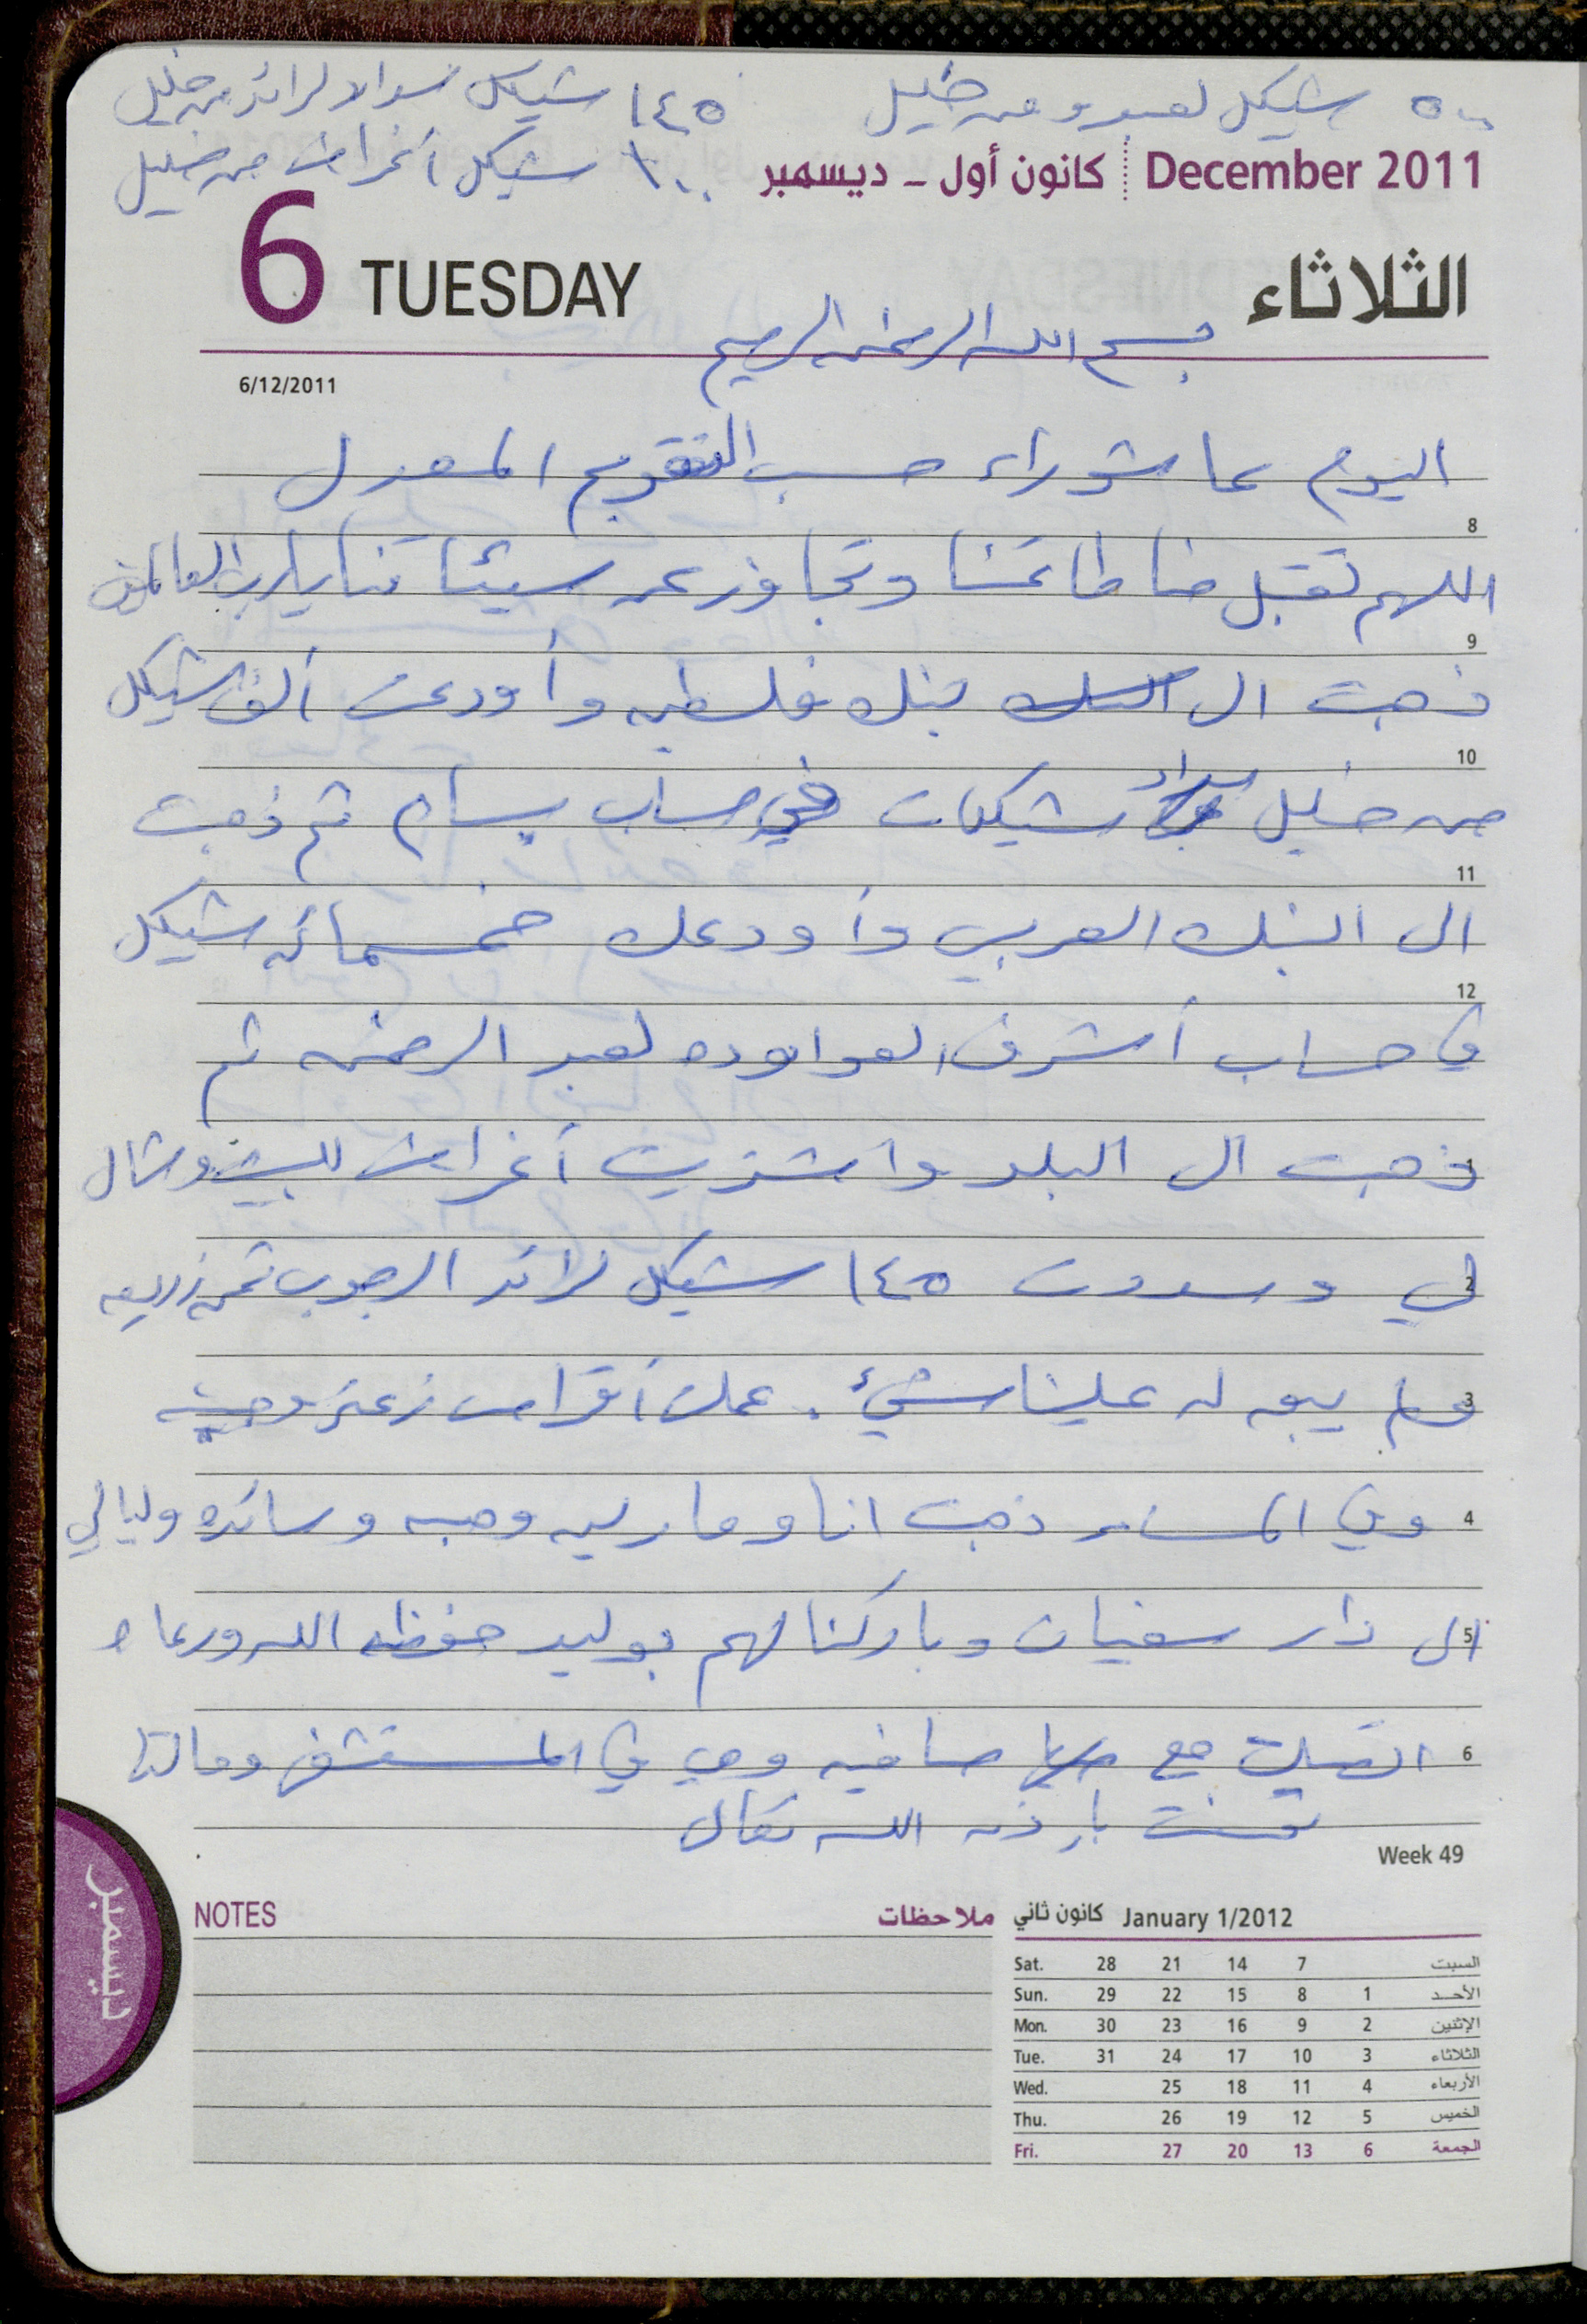 ٥٠٠ شيكل لعبدو من خليل
١٤٥ شيكل سداد لرائد من خليل
١٠٠ شيكل أغراض من خليل
December 2011 كانون أول - ديسمبر
6 TUESDAY الثلاثاء
بسم الله الرحمن الرحيم
6/12/2011
اليوم عاشوراء حسب التقويم المعدل
8
اللهم تقبل منا طاعتنا وتجاوز عن سيئاتنا يا رب العالمين
9
ذهبت الى بنك فلسطين وأودعت ألف شيكل
10
من خليل سداد شيكات في حساب بسام ثم ذهبت
11
الى البنك العربي وأودعك خمسمائه شيكل
12
في حساب أشرف العواوده لعبد الرحمن ثم
1
ذهبت الى البلد واشتريت أغراض للبيت وشال
2
لي وسددت ١٤٥ شيكل لرائد الرجوب ثمن
3
ولم يبق له علينا شيء . عملت أقراص زعتر وجبنه
4
وفي المساء ذهبت انا و وهبه وسائده وليالي
5
الى دار سفيان وباركنا لهم بوليد حفظه الله ورعاه
6
اتصلت مع صافيه وهي في المستشفى وحالتها
تحسنت بإذن الله تعالى
Week 49
ديسمبر
NOTES ملاحظات
كانون ثاني January 1/2012
Sat. 28 21 14 7 السبت
Sun. 29 22 15 8 1 الأحد
Mon. 30 23 16 9 2 الإثنين
Tue. 31 24 17 10 3 الثلاثاء
Wed. 25 18 11 4 الأربعاء
Thu. 26 19 12 5 الخميس
Fri. 27 20 13 6 الجمعة